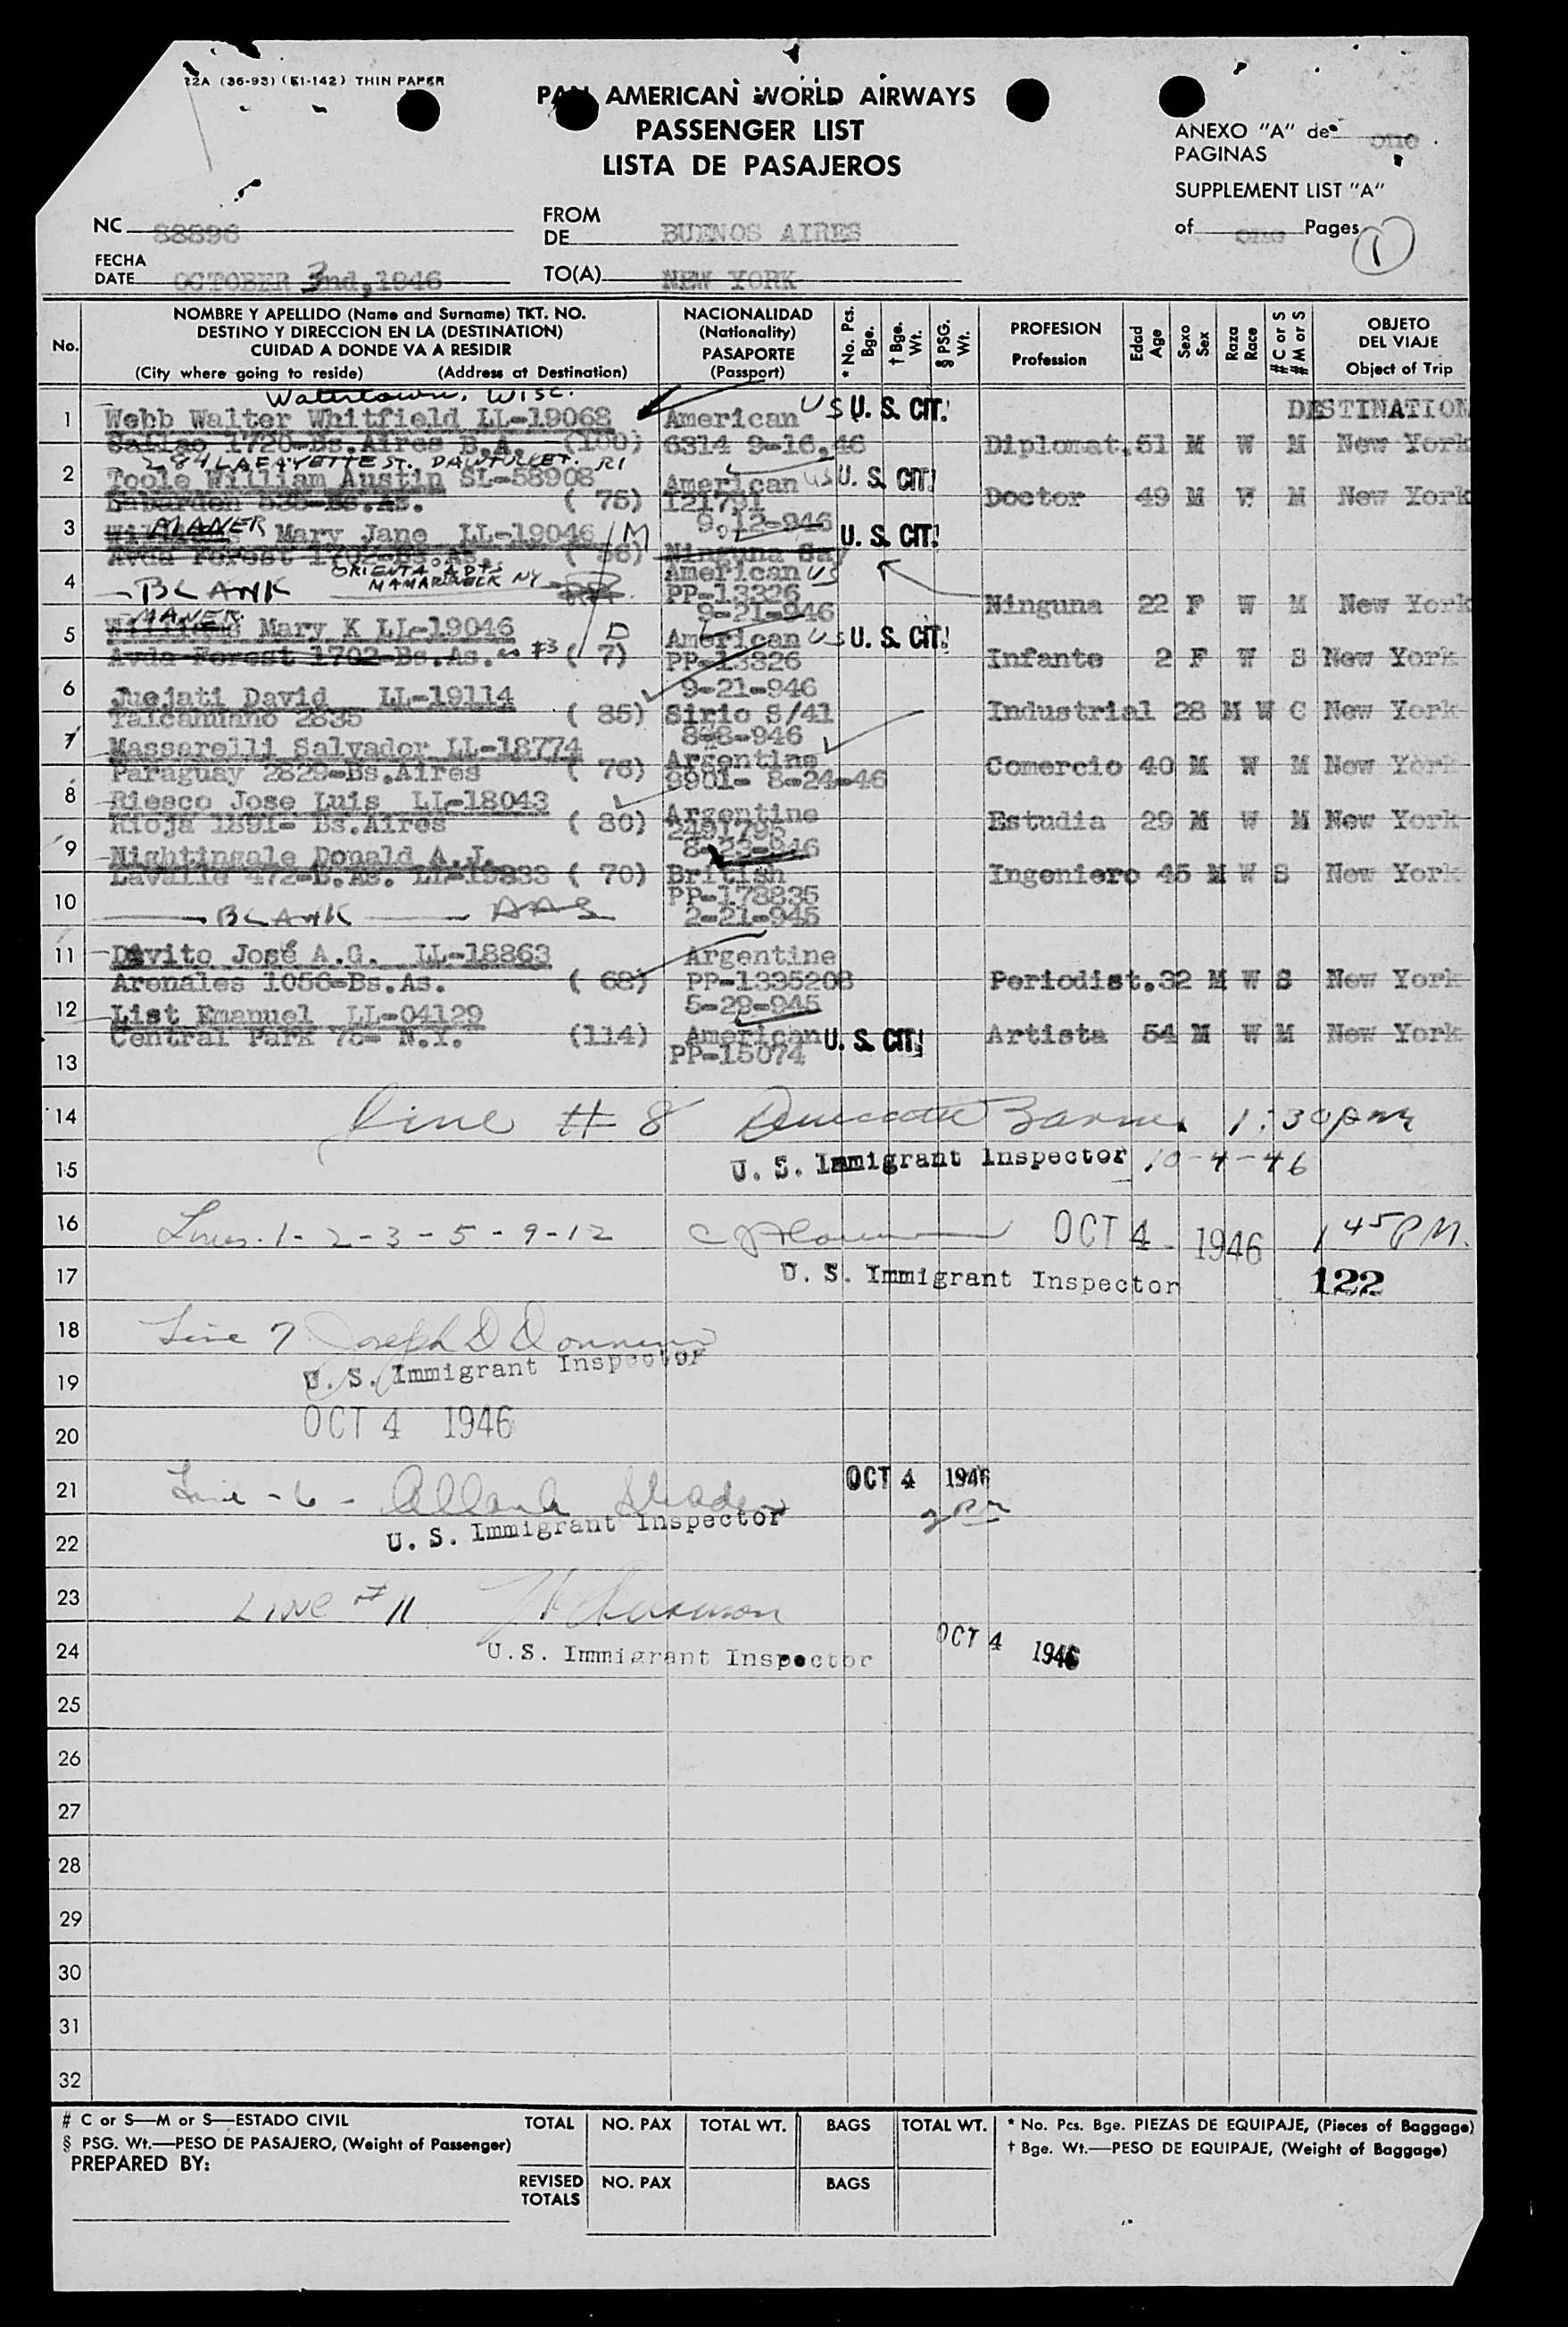 22A (36-93) (E1-142) THIN PAPER
PAN AMERICAN WORLD AIRWAYS
PASSENGER LIST
LISTA DE PASAJEROS
ANEXO "A" de one
PAGINAS
SUPPLEMENT LIST "A"
of one Pages 1
NC 88896
FROM
DE BUENOS AIRES
FECHA
DATE OCTOBER 3nd, 1946
TO(A) NEW YORK
No.
NOMBRE Y APELLIDO (Name and Surname) TKT. NO.
DESTINO Y DIRECCION EN LA (DESTINATION)
CUIDAD A DONDE VA A RESIDIR
(City where going to reside) (Address at Destination)
NACIONALIDAD
(Nationality)
PASAPORTE
(Passport)
* No. Pcs. Bge.
† Bge. Wt.
§ PSG. Wt.
PROFESION
Profession
Edad Age
Sexo Sex
Raza Race
# C or S
# M or S
OBJETO
DEL VIAJE
Object of Trip
Watertown, Wisc.
1 Webb Walter Whitfield LL-19068 American US U. S. CIT. DESTINATION
Callao 1720-Bs.Aires B.A. (100) 6314 9-16.46 Diplomat. 51 M W M New York
284 LAFAYETTE ST. PAWTUCKET. RI
2 Toole William Austin SL-58908 American US U. S. CIT.
538-Bs.As. ( 75) 121791 Doctor 49 M W M New York
9.12-946
3 MANER Mary Jane LL-19046 M U. S. CIT.
Avda Forest 1702-Bs.As. ( 56) Ninguna Say
ORIENTA APTS
MAMARONECK NY
American US
4 BLANK PP-13326 Ninguna 22 F W M New York
9-21-946
MANER
5 Williams Mary K LL-19046 D American US U. S. CIT.
Avda Forest 1702-Bs.As. #3 ( 7) PP-13326 Infante 2 F W S New York
9-21-946
6 Juejati David LL-19114
Talcahuano 2835 ( 85) Sirio S/41 Industrial 28 M W C New York
8-8-946
7 Massarelli Salvador LL-18774 Argentine
Paraguay 2829-Bs.Aires ( 76) 9901- 8-24-46 Comercio 40 M W M New York
8 Riesco Jose Luis LL-18043 Argentine
Rioja 1891- Bs.Aires ( 80) 2491795 Estudia 29 M W M New York
8-23-946
9 Nightingale Donald A.J.
Lavalle 472-B.As. LL-19833 ( 70) British Ingeniero 45 M W S New York
PP-178835
10 BLANK 2-21-945
11 Divito José A.G. LL-18863 Argentine
Arenales 1056-Bs.As. ( 68) PP-1335208 Periodist. 32 M W S New York
5-29-945
12 List Emanuel LL-04129 American U. S. CIT.
Central Park 75- N.Y. (114) PP-15074 Artista 54 M W M New York
13
14 Line # 8 1:30 pm
15 U. S. Immigrant Inspector 10-4-46
16 Lines. 1-2-3-5-9-12 OCT 4 1946 1 45 PM.
17 U. S. Immigrant Inspector 122
18 Line 7 Joseph D
19 U. S. Immigrant Inspector
20 OCT 4 1946
21 Line - 6 - OCT 4 1946
2 PM
22 U. S. Immigrant Inspector
23 LINE # 11
24 U.S. Immigrant Inspector OCT 4 1946
25
26
27
28
29
30
31
32
# C or S—M or S—ESTADO CIVIL
§ PSG. Wt.—PESO DE PASAJERO, (Weight of Passenger)
PREPARED BY:
TOTAL NO. PAX TOTAL WT. BAGS TOTAL WT.
REVISED TOTALS NO. PAX BAGS
* No. Pcs. Bge. PIEZAS DE EQUIPAJE, (Pieces of Baggage)
† Bge. Wt.—PESO DE EQUIPAJE, (Weight of Baggage)